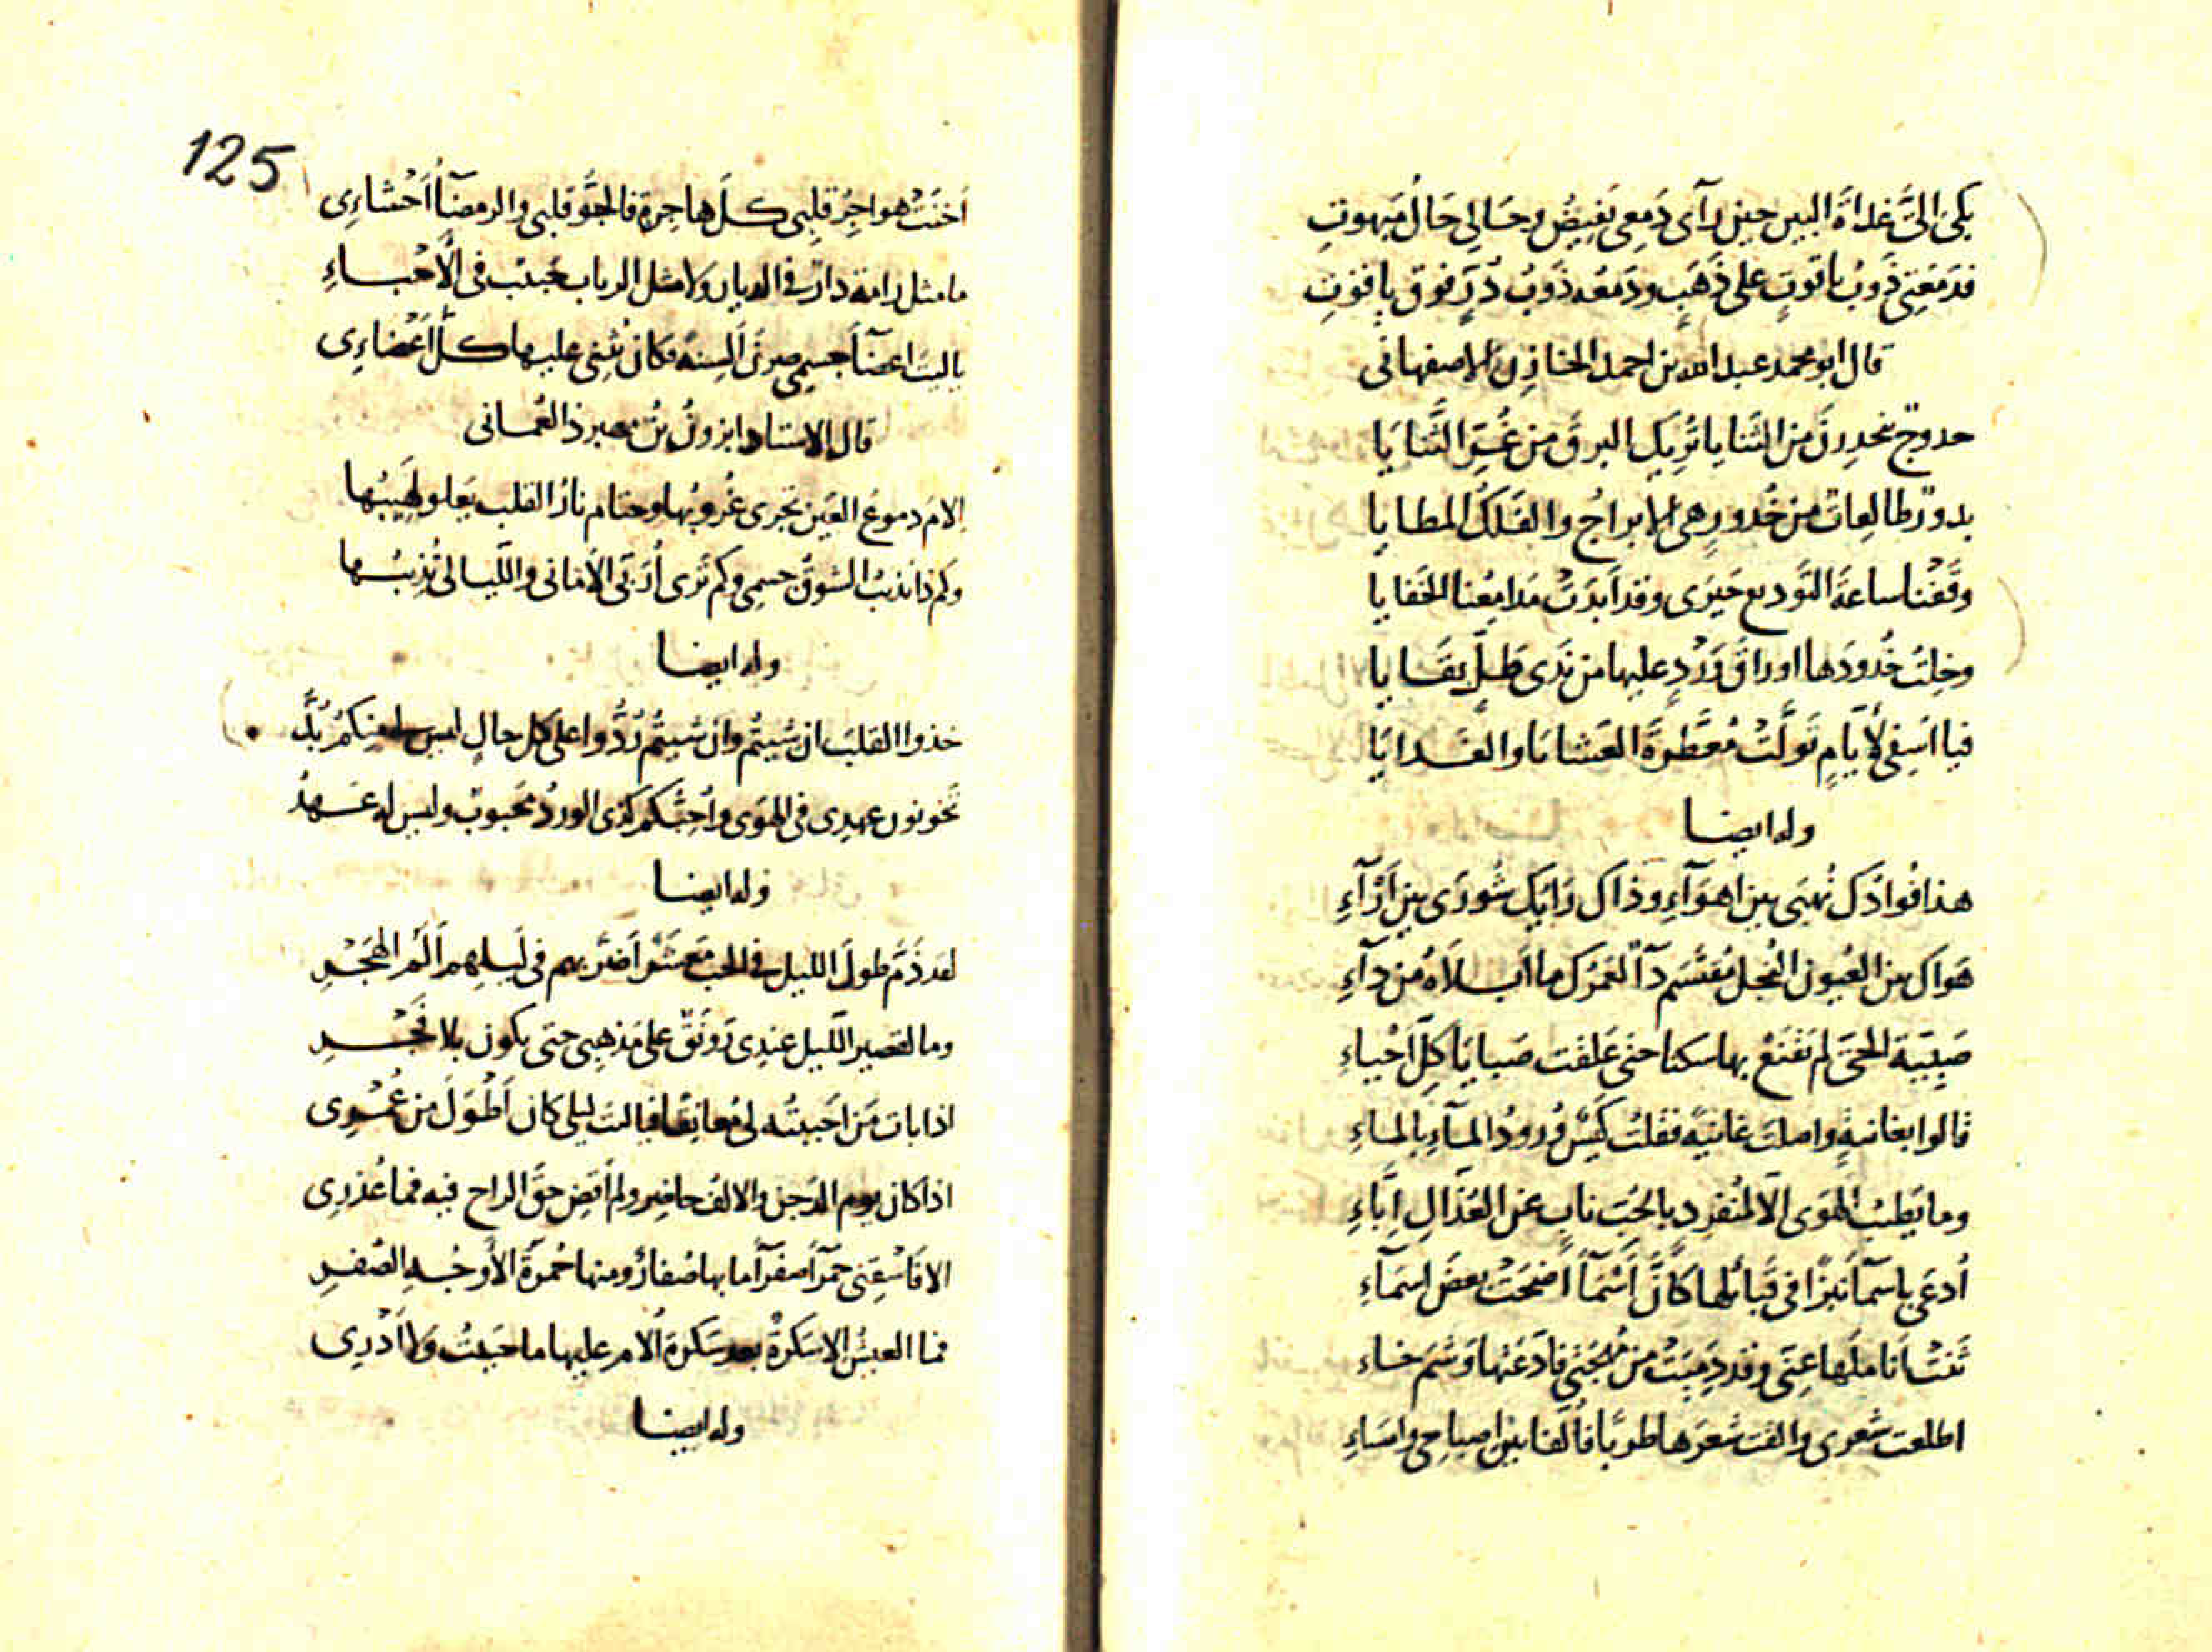 بكى الىَّ غداةَ البين حين رآى دَمعى يَفيضُ وحالى حَالُ مَبهوتِ
فدَمعَتى ذَوبُ ياقوتٍ على ذَهَبٍ ودَمعُه ذَوبُ دُرٍّ فوق ياقوتِ
قال ابو محمد عبد الله بن احمد الخازن الاصفهانى
حدوجٌ تنحدِرنَ من الثنايا تُرِيكَ البرقَ من غُرِّ الثَّنايَا
بدورٌ طالعاتٌ من خُدورٍ هى الابراجُ والفَلَكُ المطايا
وقَفْنا ساعةَ التَّوديع حَيرَى وقد اَبدَتْ مَدامِعُنا الخَفايا
وخِلتُ خُدودَها اوراقَ وَرْدٍ عليها من نَدَى طَلٍّ بقَايا
فيا اَسِفى لاَيّامٍ تَولَّتْ مُعَطَّرةَ العَشايَا والغَدايَا
وله ايضا
هذا فُوادُكَ نُهبَى بين اهوَآءِ وذاكَ رَايُكَ شُورَى بين اَرْآءِ
هَواكَ بين العُيون النُّجل مُقتَسَم دآءٌ لعَمرُكَ ما اَبلاَهُ من دآءِ
صَبِيّيةَ الحَىّ لم تَقنَعْ بها سكنا حتى عَلقت صبايَا كلّ اَحْياءِ
قالوا بغانيةٍ واصلتَ غانيةً فقلتُ كَيسٌ وُرودُ المآءِ بالماءِ
وما يَطيبُ الهَوى الّا لمُنفردٍ بالحُبّ نابٍ عن العُذّالِ اَبّاءِ
اُدعَى باسمآ نبزًا فى قَبائلها كاَنَّ اَسْمَآ اَضحَتْ بعضَ اسمآءِ
ثَنتْ اَناملَها عنّى وقد دَمِيَتْ من مُهجَتى فادّعَتها وَشمَ حنّاءِ
اطلعت شعرى والقت شعرَها طربًا فاَلّفنا بين اصباحى وامساءِ
125
اَختَتْ هواجِرُ قلبى كلّ هاجرة فالجَوّ قلبى والرمضآ اَحْشاءِى
ما مثل رامة دار فى الديار ولا مثل الرباب حَبيبٌ فى الاَحْباءِ
ياليتَ اعضآ جسمى صرنَ اَلسِنةً فكان تُثنى عليها كلّ اَعْضاءِى
قال الاستاد ابزونُ بن مهبرذ العُمانى
الامَ دموعُ العَين تجرى غُروبُها وحتام نارُ القلب يَعلو لَهيبُها
وكم ذا يُذيبُ الشوقُ جسمى وكم تُرى اُرَبّى الاَمانى واللّيالى تُذيبُها
وله ايضا
خذوا القلبَ ان شيتُم وان شيتُم رُدُّوا على كل حالٍ ليس لى منكمُ بُدُّ
تخونون عهدى فى الهَوى واُحبُّكم كذى الوردُ مَحبوبٌ وليس له عَهدُ
وله ايضا
لقد ذَمَّ طولَ الليل فى الحب مَعشَرٌ اَضَرَّ بهم فى لَيلِهم اَلَمُ الهَجْرِ
وما لقصير اللّيل عندى رَونَقٌ على مَذهبى حتى يكون بلا فَجْرِ
اذا بات مَن اَحببتُه لى مُعانِقًا فياليتَ ليلى كان اَطْوَلَ من عُمْرِى
اذا كان يوم الدَّجن والالفُ حاضر ولم اَقضِ حقَّ الراح فيه فما عُذرِى
الا فَاسْقِنى حَمرآ صفرآ ما بها صُفارٌ ومنها حُمرَةُ الاَوجُهِ الصُفرِ
فما العيشُ الا سَكرةٌ بعد سَكرة اُلام عليها ما حَييتُ ولا اَدْرِى
وله ايضا